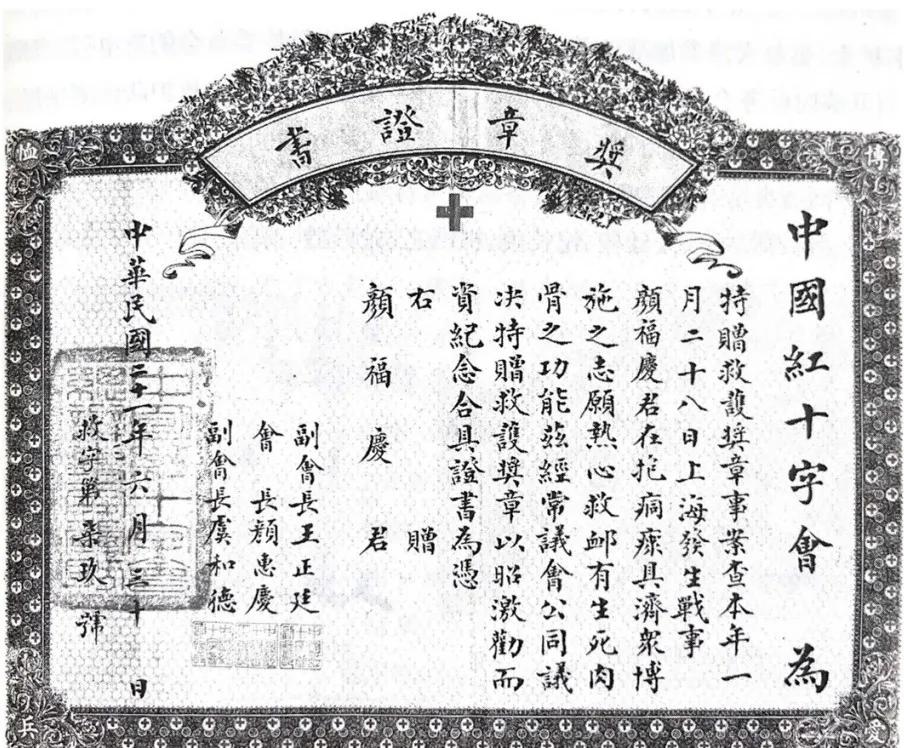 獎章證書
博愛
恤兵
中國紅十字會 為
特贈救護獎章事案查本年一
月二十八日上海發生戰事
顏福慶君在抱痌瘝具濟衆博
施之志願熱心救卹有生死肉
骨之功能茲經常議會公同議
决特贈救護獎章以昭激勸而
資紀念合具證書為憑
右 贈
顏福慶 君
副會長王正廷
會長顏惠慶
副會長虞和德
中華民國二十一年六月三十日
救字第柒玖號